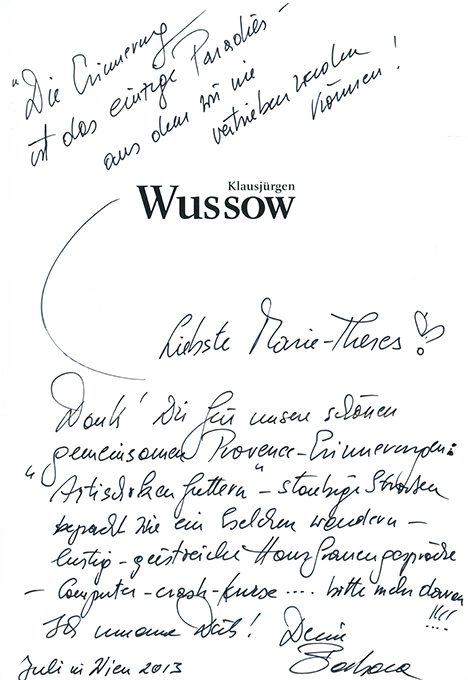 "Die Erinnerung
ist das einzige Paradies -
aus dem wir nie
vertrieben werden
können!
Klausjürgen
WUSSOW
Liebste Marie-Theres!
Dank' Dir für unsere schönen
gemeinsamen Provence-Erinnerungen:
"Artischocken füttern" - staubige Strassen
bepackt wie ein Eselchen wandern -
lustig - geistreiche Hausfrauengespräche
- Computer-crash-kurse .... bitte mehr davon
!!!!
Ich umarme Dich! Deine
Barbara
Juli in Wien 2013